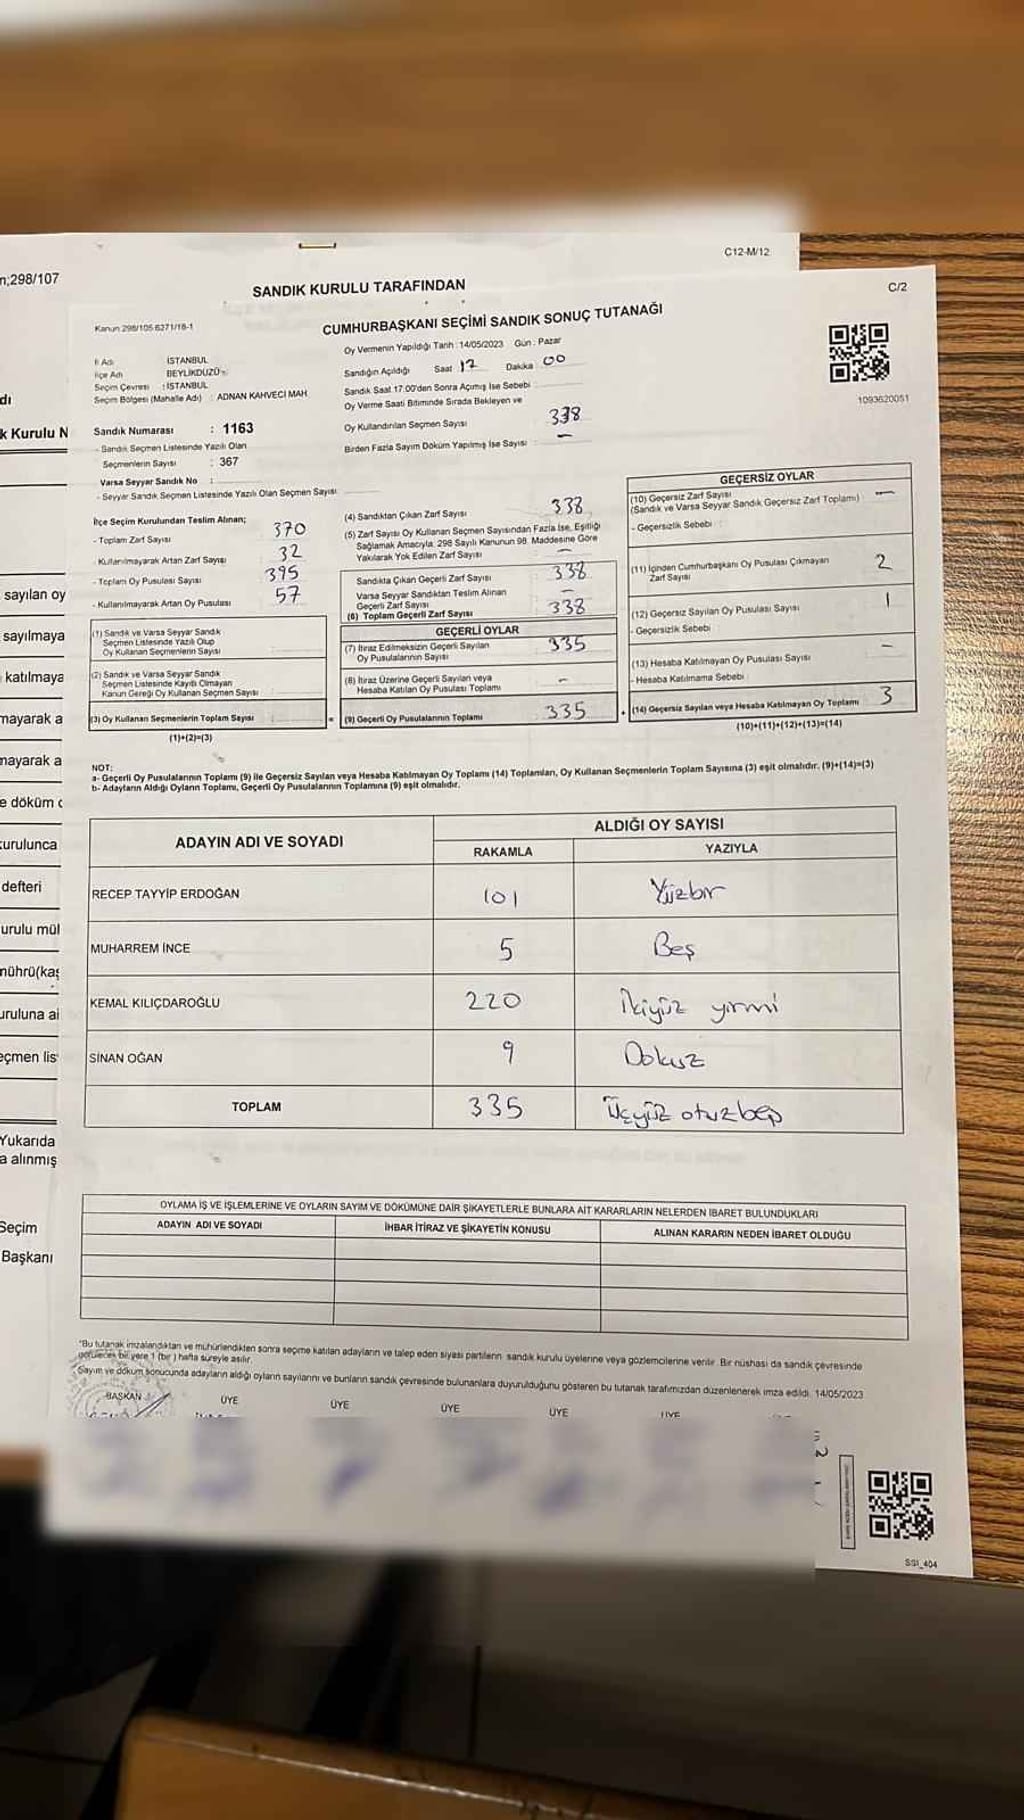 C12-M/12
n;298/107
SANDIK KURULU TARAFINDAN
C/2
Kanun 298/105 6271/18-1
CUMHURBAŞKANI SEÇİMİ SANDIK SONUÇ TUTANAĞI
Oy Vermenin Yapıldığı Tarih : 14/05/2023 Gün : Pazar
İl Adı İSTANBUL
İlçe Adı BEYLİKDÜZÜ
Seçim Çevresi : İSTANBUL
Seçim Bölgesi (Mahalle Adı) : ADNAN KAHVECİ MAH.
Sandığın Açıldığı Saat 17 Dakika 00
Sandık Saat 17:00'den Sonra Açımış İse Sebebi :
Oy Verme Saati Bitiminde Sırada Bekleyen ve
Oy Kullandırılan Seçmen Sayısı 338
Birden Fazla Sayım Döküm Yapılmış İse Sayısı : –
1093620051
Sandık Numarası : 1163
- Sandık Seçmen Listesinde Yazılı Olan
Seçmenlerin Sayısı : 367
Varsa Seyyar Sandık No :
- Seyyar Sandık Seçmen Listesinde Yazılı Olan Seçmen Sayısı
İlçe Seçim Kurulundan Teslim Alınan;
- Toplam Zarf Sayısı 370
- Kullanılmayarak Artan Zarf Sayısı 32
- Toplam Oy Pusulası Sayısı 395
- Kullanılmayarak Artan Oy Pusulası 57
(1) Sandık ve Varsa Seyyar Sandık
Seçmen Listesinde Yazılı Olup
Oy Kullanan Seçmenlerin Sayısı
(2) Sandık ve Varsa Seyyar Sandık
Seçmen Listesinde Kayıtlı Olmayan
Kanun Gereği Oy Kullanan Seçmen Sayısı
(3) Oy Kullanan Seçmenlerin Toplam Sayısı
(1)+(2)=(3)
(4) Sandıktan Çıkan Zarf Sayısı 338
(5) Zarf Sayısı Oy Kullanan Seçmen Sayısından Fazla İse, Eşitliği
Sağlamak Amacıyla; 298 Sayılı Kanunun 98. Maddesine Göre
Yakılarak Yok Edilen Zarf Sayısı –
Sandıkta Çıkan Geçerli Zarf Sayısı 338
Varsa Seyyar Sandıktan Teslim Alınan
Geçerli Zarf Sayısı –
(6) Toplam Geçerli Zarf Sayısı 338
GEÇERLİ OYLAR
(7) İtiraz Edilmeksizin Geçerli Sayılan
Oy Pusulalarının Sayısı 335
(8) İtiraz Üzerine Geçerli Sayılan veya
Hesaba Katılan Oy Pusulası Toplamı –
= (9) Geçerli Oy Pusulalarının Toplamı 335
GEÇERSİZ OYLAR
(10) Geçersiz Zarf Sayısı –
(Sandık ve Varsa Seyyar Sandık Geçersiz Zarf Toplamı)
- Geçersizlik Sebebi :
(11) İçinden Cumhurbaşkanı Oy Pusulası Çıkmayan
Zarf Sayısı 2
(12) Geçersiz Sayılan Oy Pusulası Sayısı 1
- Geçersizlik Sebebi :
(13) Hesaba Katılmayan Oy Pusulası Sayısı –
- Hesaba Katılmama Sebebi :
+ (14) Geçersiz Sayılan veya Hesaba Katılmayan Oy Toplamı 3
(10)+(11)+(12)+(13)=(14)
NOT:
a- Geçerli Oy Pusulalarının Toplamı (9) ile Geçersiz Sayılan veya Hesaba Katılmayan Oy Toplamı (14) Toplamları, Oy Kullanan Seçmenlerin Toplam Sayısına (3) eşit olmalıdır. (9)+(14)=(3)
b- Adayların Aldığı Oyların Toplamı, Geçerli Oy Pusulalarının Toplamına (9) eşit olmalıdır.
ADAYIN ADI VE SOYADI
ALDIĞI OY SAYISI
RAKAMLA YAZIYLA
RECEP TAYYİP ERDOĞAN 101 Yüzbir
MUHARREM İNCE 5 Beş
KEMAL KILIÇDAROĞLU 220 İkiyüz yirmi
SİNAN OĞAN 9 Dokuz
TOPLAM 335 Üçyüz otuzbeş
OYLAMA İŞ VE İŞLEMLERİNE VE OYLARIN SAYIM VE DÖKÜMÜNE DAİR ŞİKAYETLERLE BUNLARA AİT KARARLARIN NELERDEN İBARET BULUNDUKLARI
ADAYIN ADI VE SOYADI İHBAR İTİRAZ VE ŞİKAYETİN KONUSU ALINAN KARARIN NEDEN İBARET OLDUĞU
*Bu tutanak imzalandıktan ve mühürlendikten sonra seçime katılan adayların ve talep eden siyasi partilerin sandık kurulu üyelerine veya gözlemcilerine verilir. Bir nüshası da sandık çevresinde
görülecek bir yere 1 (bir ) hafta süreyle asılır.
Sayım ve döküm sonucunda adayların aldığı oyların sayılarını ve bunların sandık çevresinde bulunanlara duyurulduğunu gösteren bu tutanak tarafımızdan düzenlenerek imza edildi. 14/05/2023
BAŞKAN ÜYE ÜYE ÜYE ÜYE ÜYE
SSI_404
dı
k Kurulu N
sayılan oy
sayılmaya
katılmaya
mayarak a
mayarak a
e döküm
kurulunca
defteri
urulu mül
mührü(kaş
uruluna ai
eçmen lis
Yukarıda
a alınmış
Seçim
Başkanı